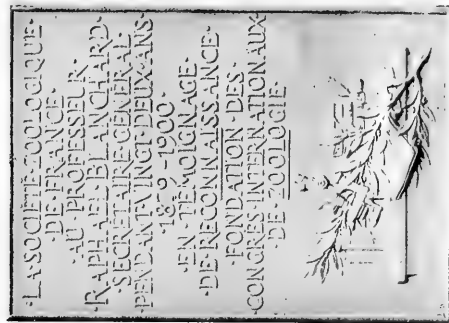 ·LA·SOCIÉTÉ·ZOOLOGIQUE·
·DE·FRANCE·
·AU·PROFESSEUR·
·RAPHAEL·BLANCHARD·
·SECRÉTAIRE·GÉNÉRAL·
·PENDANT·VINGT·DEUX·ANS·
·1879-1900·
·EN·TÉMOIGNAGE·
·DE·RECONNAISSANCE·
·FONDATION·DES·
·CONGRÈS·INTERNATIONAUX·
·DE·ZOOLOGIE·